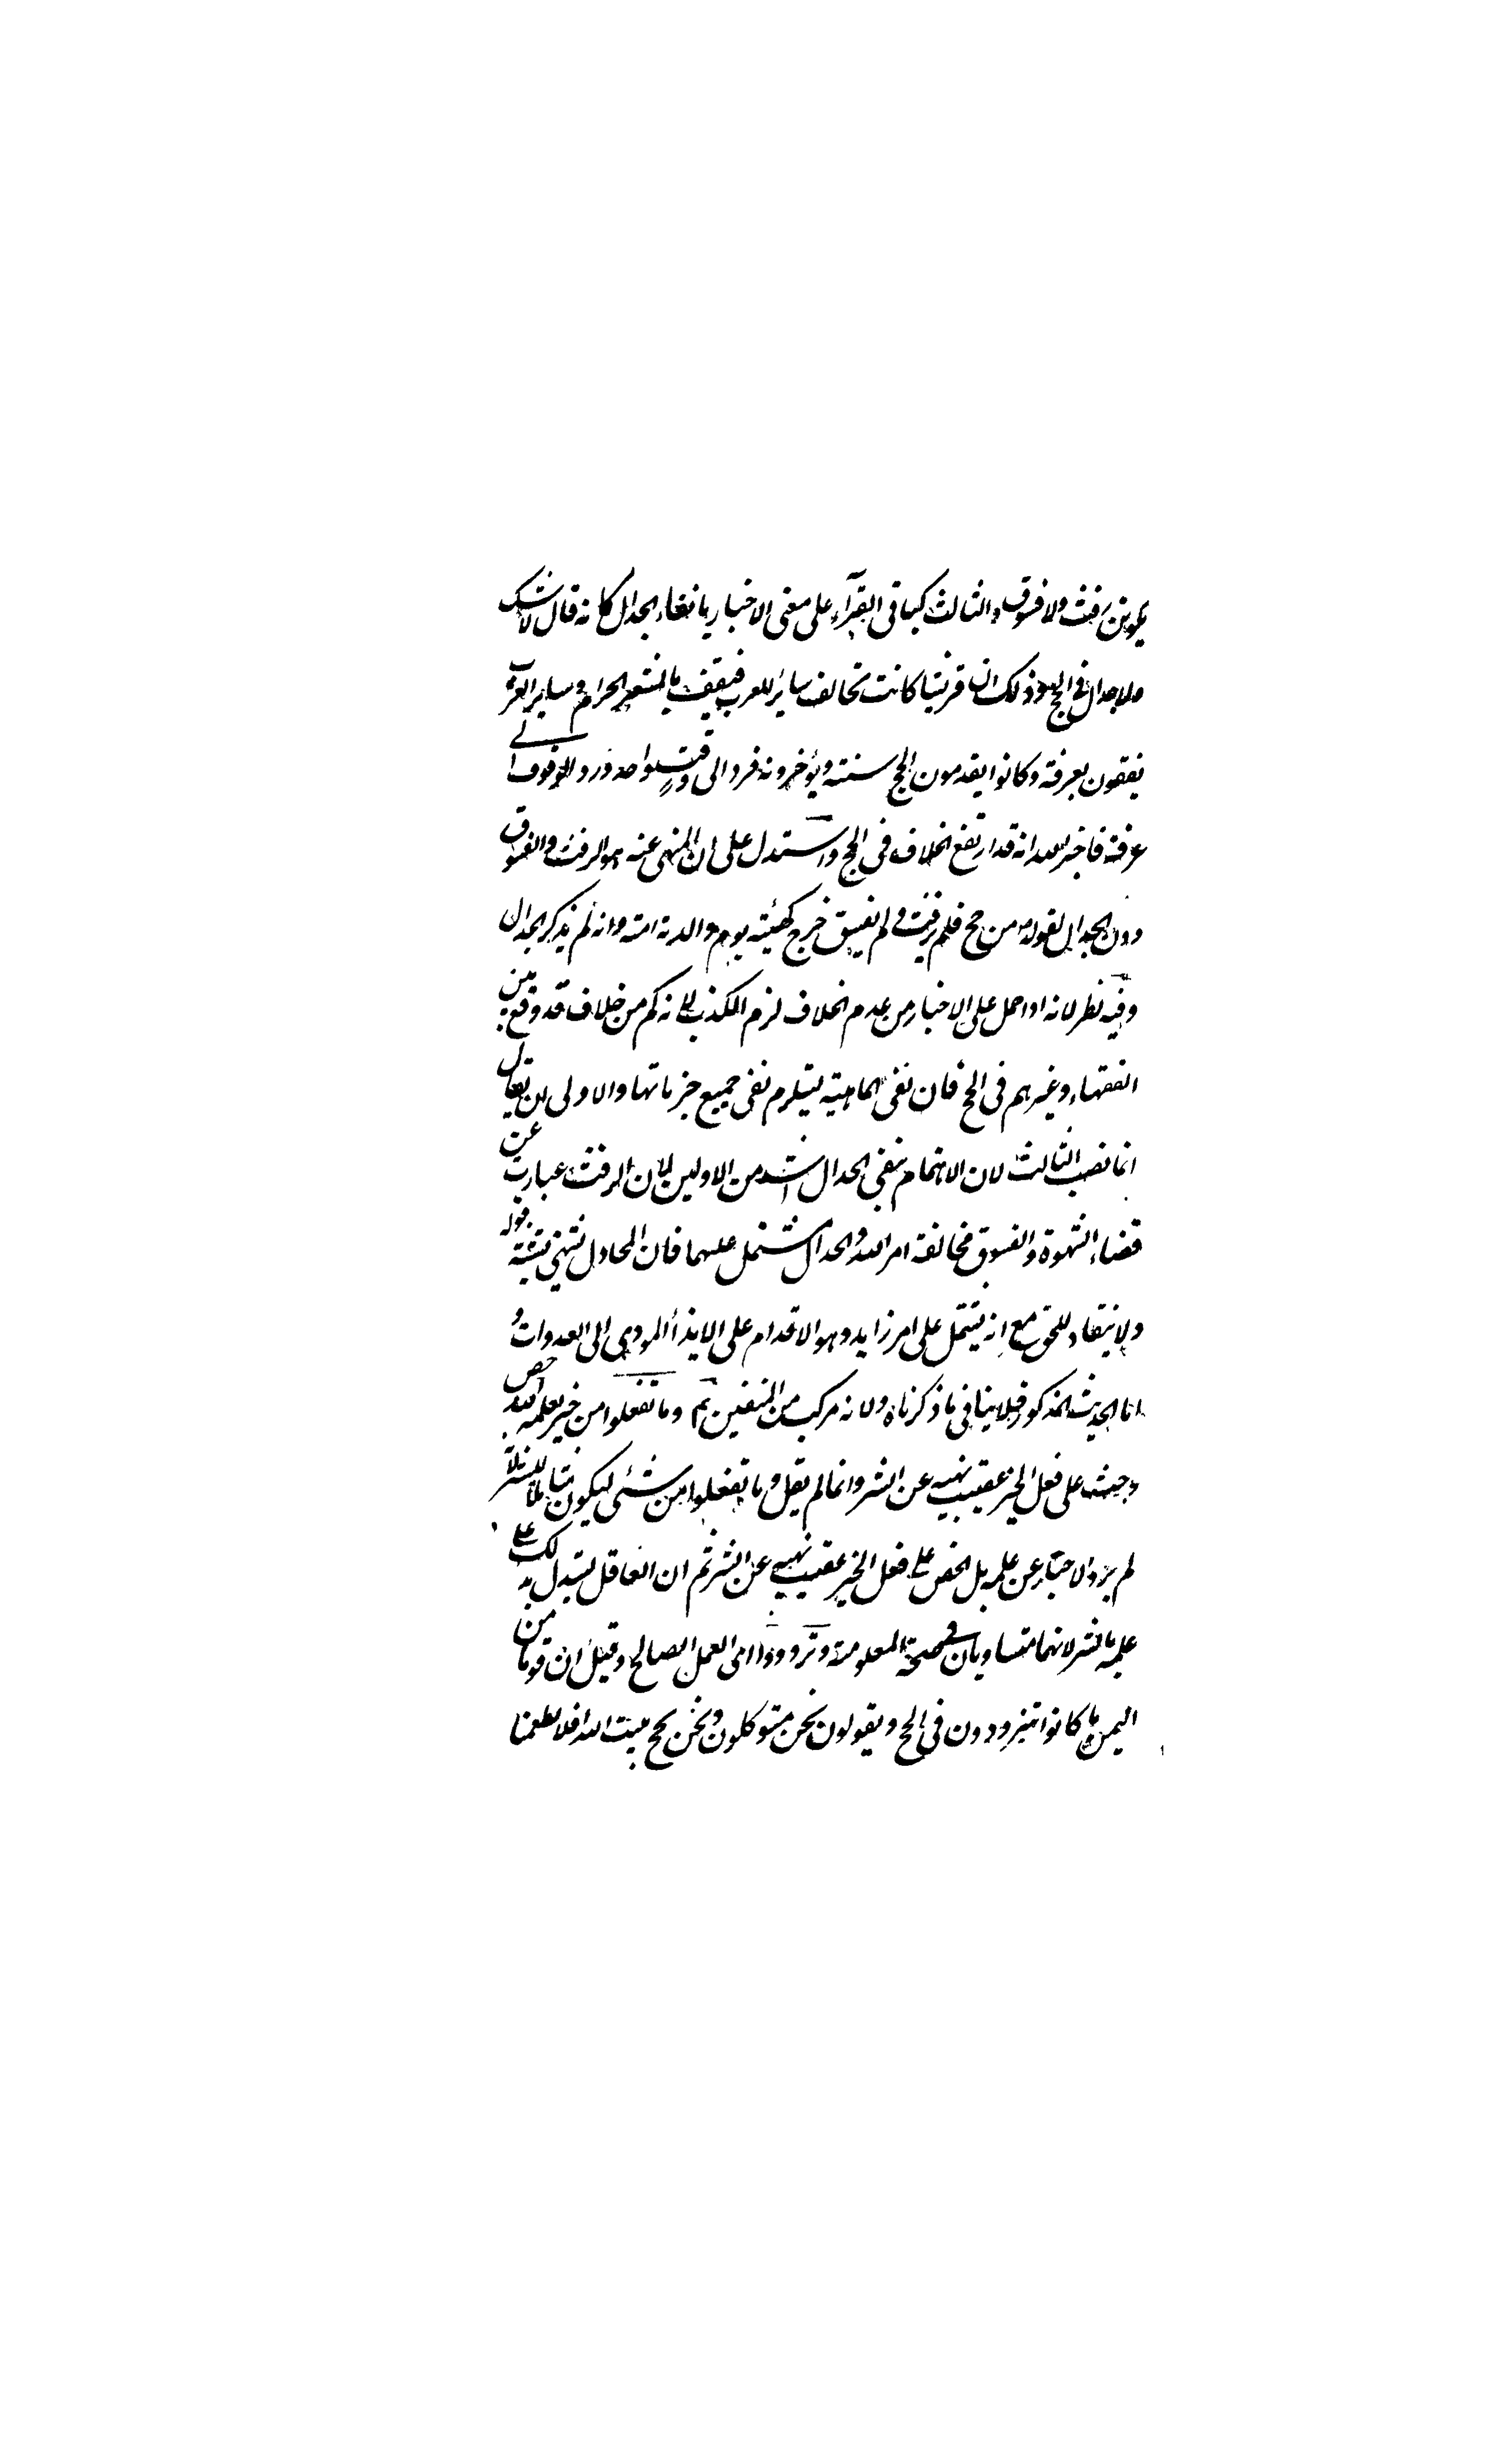 يكونن رفث ولا فسوق والثالث كباقي القراء على معنى الاخبار بانتفاء الجدال كانه قال لا شك
ولا جدال في الحج وذلك ان قريشا كانت تخالف سائر العرب فيقف بالمشعر الحرام وساير العرب
يقفون بعرفة وكانوا يقدمون الحج سنة ويؤخرونه فرد الى وقت واحد ورد الوقوف الى
عرفة فاخبر الله انه قد ارتفع الخلاف في الحج واستدل على ان المنهي عنه هو الرفث والفسوق
دون الجدال لقوله من حج فلم يرفث ولم يفسق خرج كهيئة يوم ولدته امه وانه لم يذكر الجدال
وفيه نظر لانه اذا حمل على الاخبار من عدم الخلاف لزم الكذب لانه كم من خلاف قد وقع بين
الفقهاء وغيرهم في الحج فان نفي الماهية يستلزم نفي جميع جزياتها والاولى ان يقال
انما نصب الثالث لان الاهتمام بنفي الجدال اشد من الاولين لان الرفث عبارت عن
قضاء الشهوة والفسوق مخالفة امر الله والجدال مشتمل عليهما فان المجادل يشتهي تمشية قوله
ولا ينقاد للحق مع انه يشتمل على امر زايد وهو الاقدام على الايذاء المودي الى العداوات و
اما الحديث المذكور فلا ينافي ما ذكرناه ولانه مركب من المنفيين ثم وما تفعلوا من خير يعلمه الله حض
وحث على فعل الخير عقيب نهيه عن الشر وانما لم يقل وما تفعلوا من شئ ليكون متناولا للشر لانه
لم يرد الاخبار عن علمه بل الحض على فعل الخير عقيب نهيه عن الشر ثم ان العاقل يستدل بذلك على
علمه بالشر لانهما متساويان في صحة المعلومة وتزودوا اى العمل الصالح وقيل ان قوما من
اليمن كانوا لا يتزودون في الحج ويقولون نحن متوكلون ونحن نحج بيت الله افلا يطعمنا